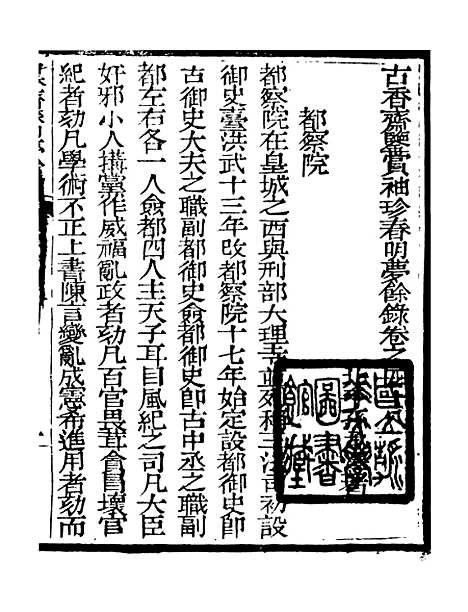 古香齋鑒賞袖珍春明夢餘錄卷之四十
都察院
都察院在皇城之西與刑部大理寺並列稱三法司初設
御史臺洪武十三年改都察院十七年始定設都御史卽
古御史大夫之職副都御史僉都御史卽古中丞之職副
都左右各一人僉都四人主天子耳目風紀之司凡大臣
奸邪小人搆黨作威福亂政者劾凡百官猥茸貪冒壞官
紀者劾凡學術不正上書陳言變亂成憲希進用者劾而
圖書